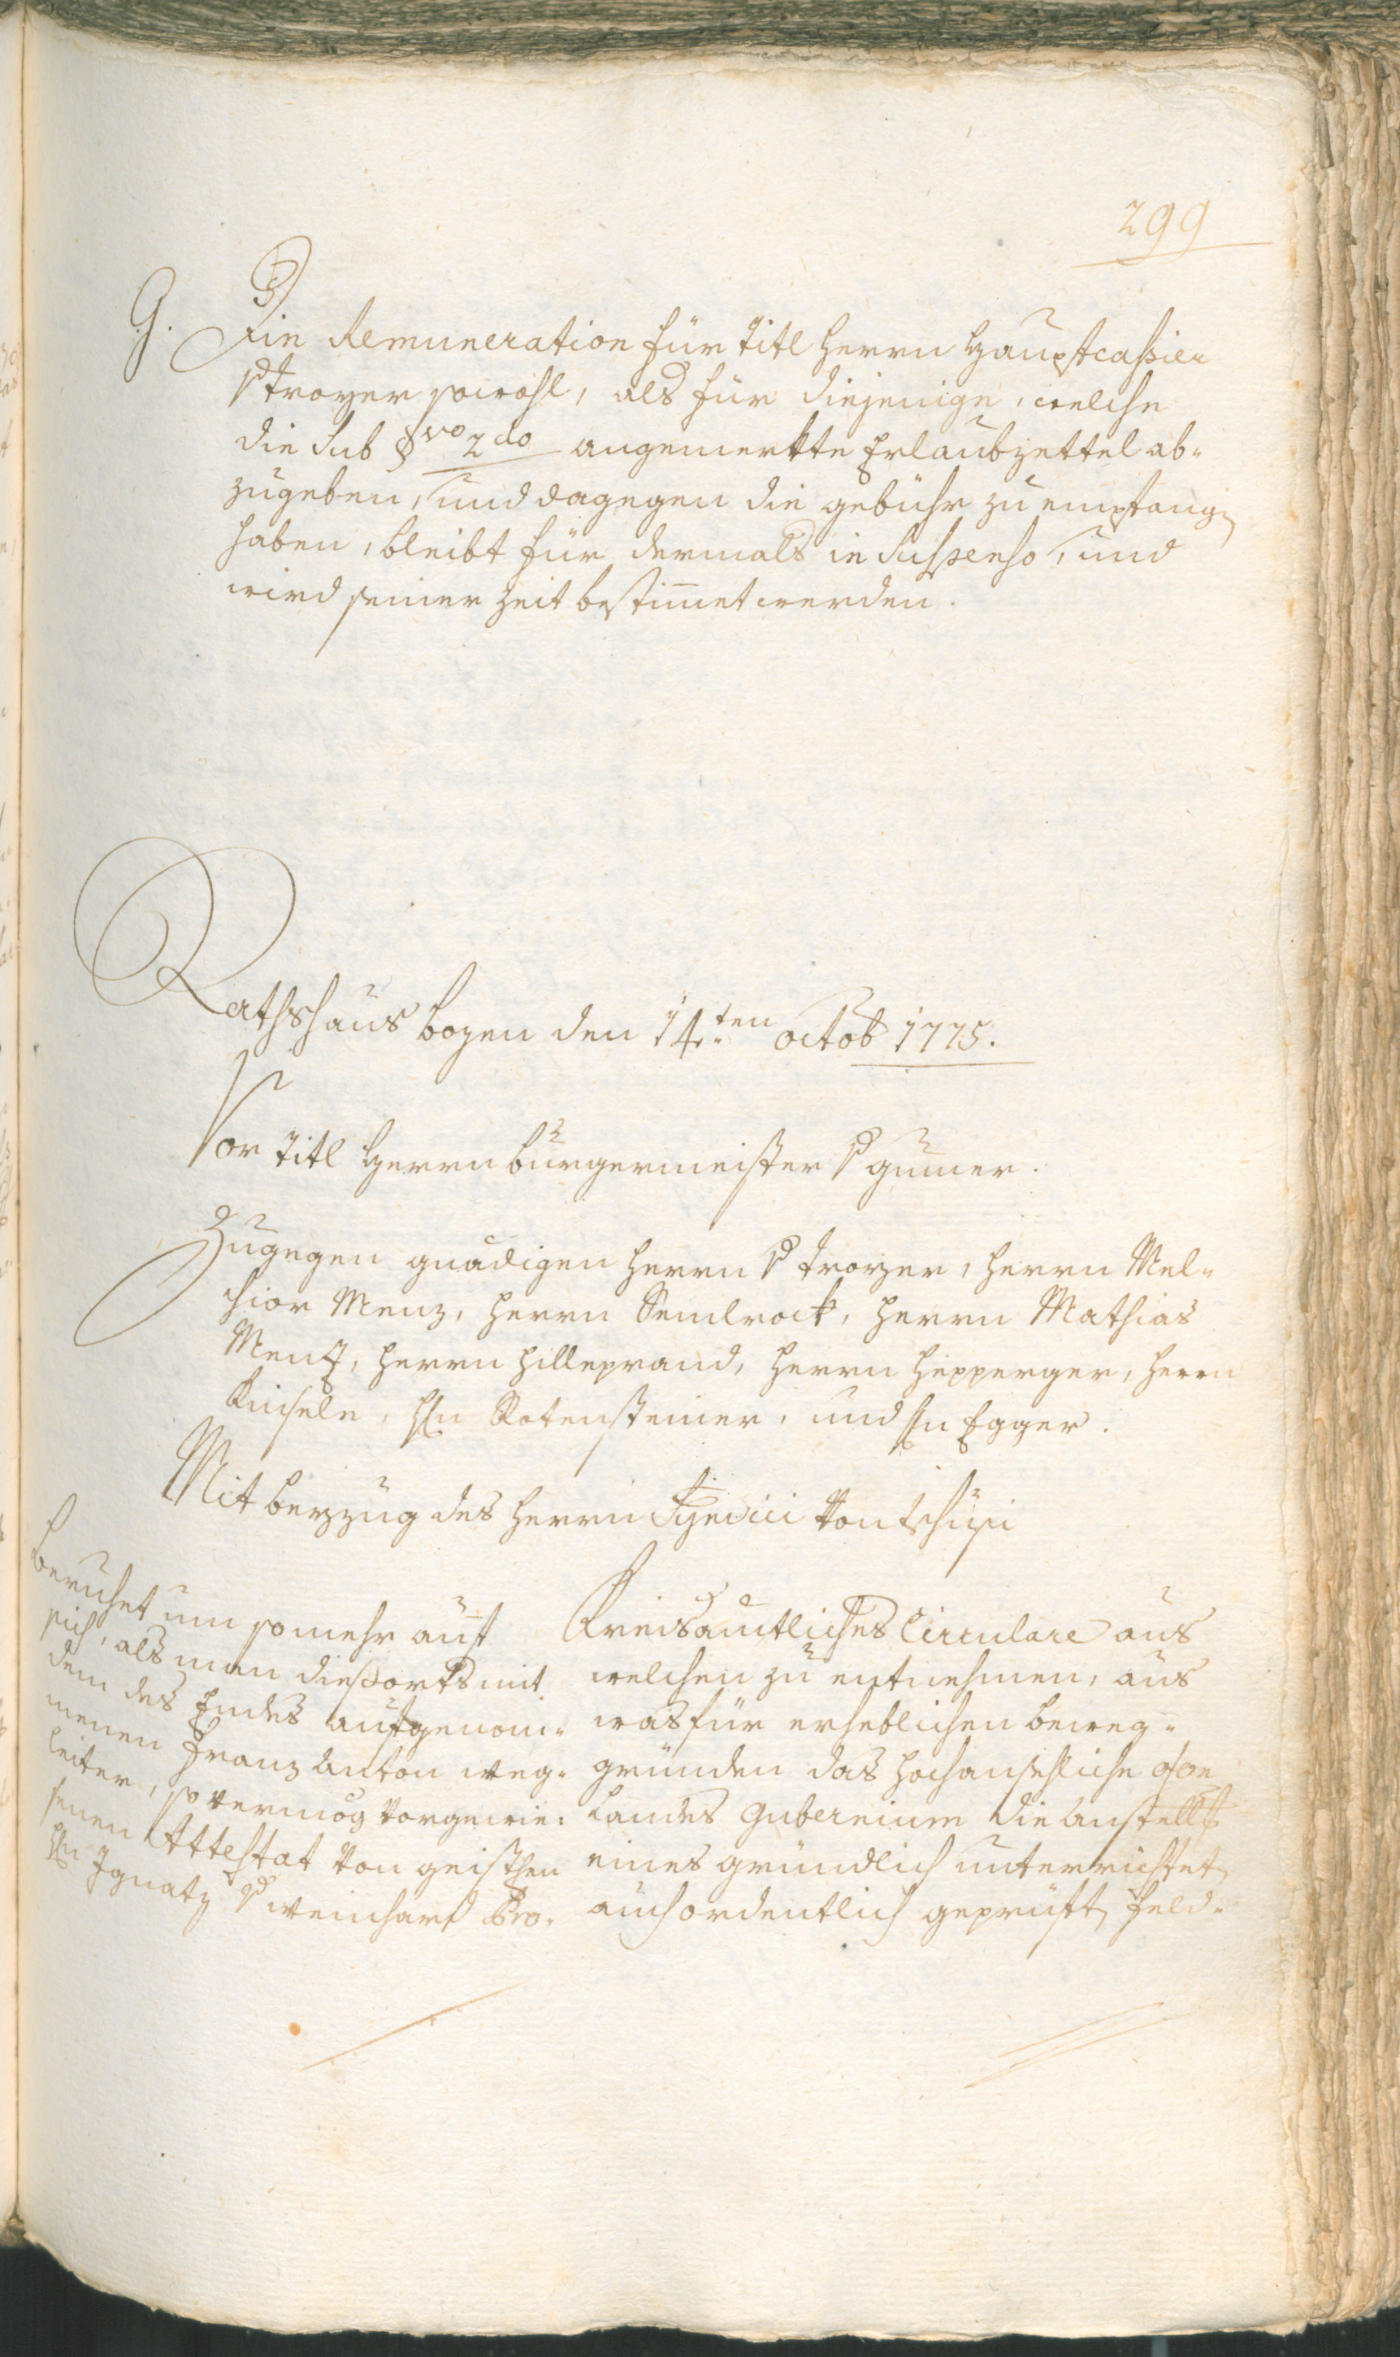 299
9. Die Remuneration für Titl Herrn Haupt cassier
v troyer sowohl, als für diejenige, welche
die sub §vo 2do angemerkte Erlaubzettel ab-
zugeben, und dagegen die gebühr zu empfangen
haben, bleibt für dermals in Suspenso, und
wird seiner Zeit bestimet werden.
Rathshaus bozen den 14.ten octob 1775.
Vor Titl Herrn bürgermeister v gumer.
Zugegen gnädigen Herrn v troyer, Herrn Mel-
chior Menz, Herrn Kemlrock, Herrn Mathias
Menz, Herrn Hilleprand, Herrn Hepperger, Herrn
Kinsele, Hn Rotensteiner, und Hn Egger.
Mit beyzug des Herrn Syndici von tschusi
beruhet um so mehr auf
sich, als man diesorts mit
dem des Endes aufgenom-
menen Franz Anton weg-
leiter, so vermög vorgewie-
senen Attestat von geistlichen
Hn Ignatz v weinhart Pro-
Kreisämtliches Circulare aus
welchen zu entnehmen, aus
was für erheblichen beweg-
gründen das hochansehliche
Landes Gubernium die Anstellung
eines gründlich unterrichtet
auch ordentlich geprüft Feld-